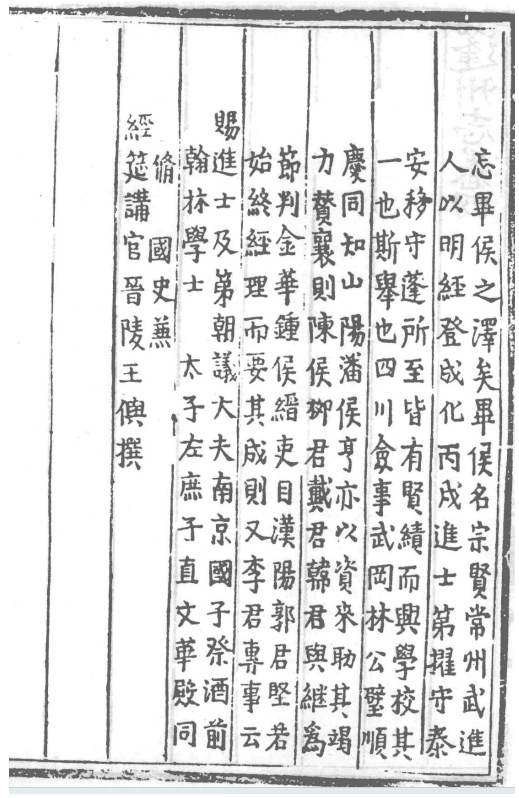 忘畢侯之澤矣畢侯名宗賢常州武進
人以明經登成化丙戌進士第擢守泰
安移守蓬所至皆有賢績而興學校其
一也斯舉也四川僉事武岡林公璧順
慶同知山陽潘侯亨亦以資來助其竭
力贊襄則陳侯柳君戴君韓君與繼爲
節判金華鍾侯縉吏目漢陽郭君堅若
始終經理而要其成則又李君專事云
賜進士及第朝議大夫南京國子祭酒前
翰林學士 太子左庶子直文華殿同
脩 國史兼
經筵講官晉陵王㒜撰